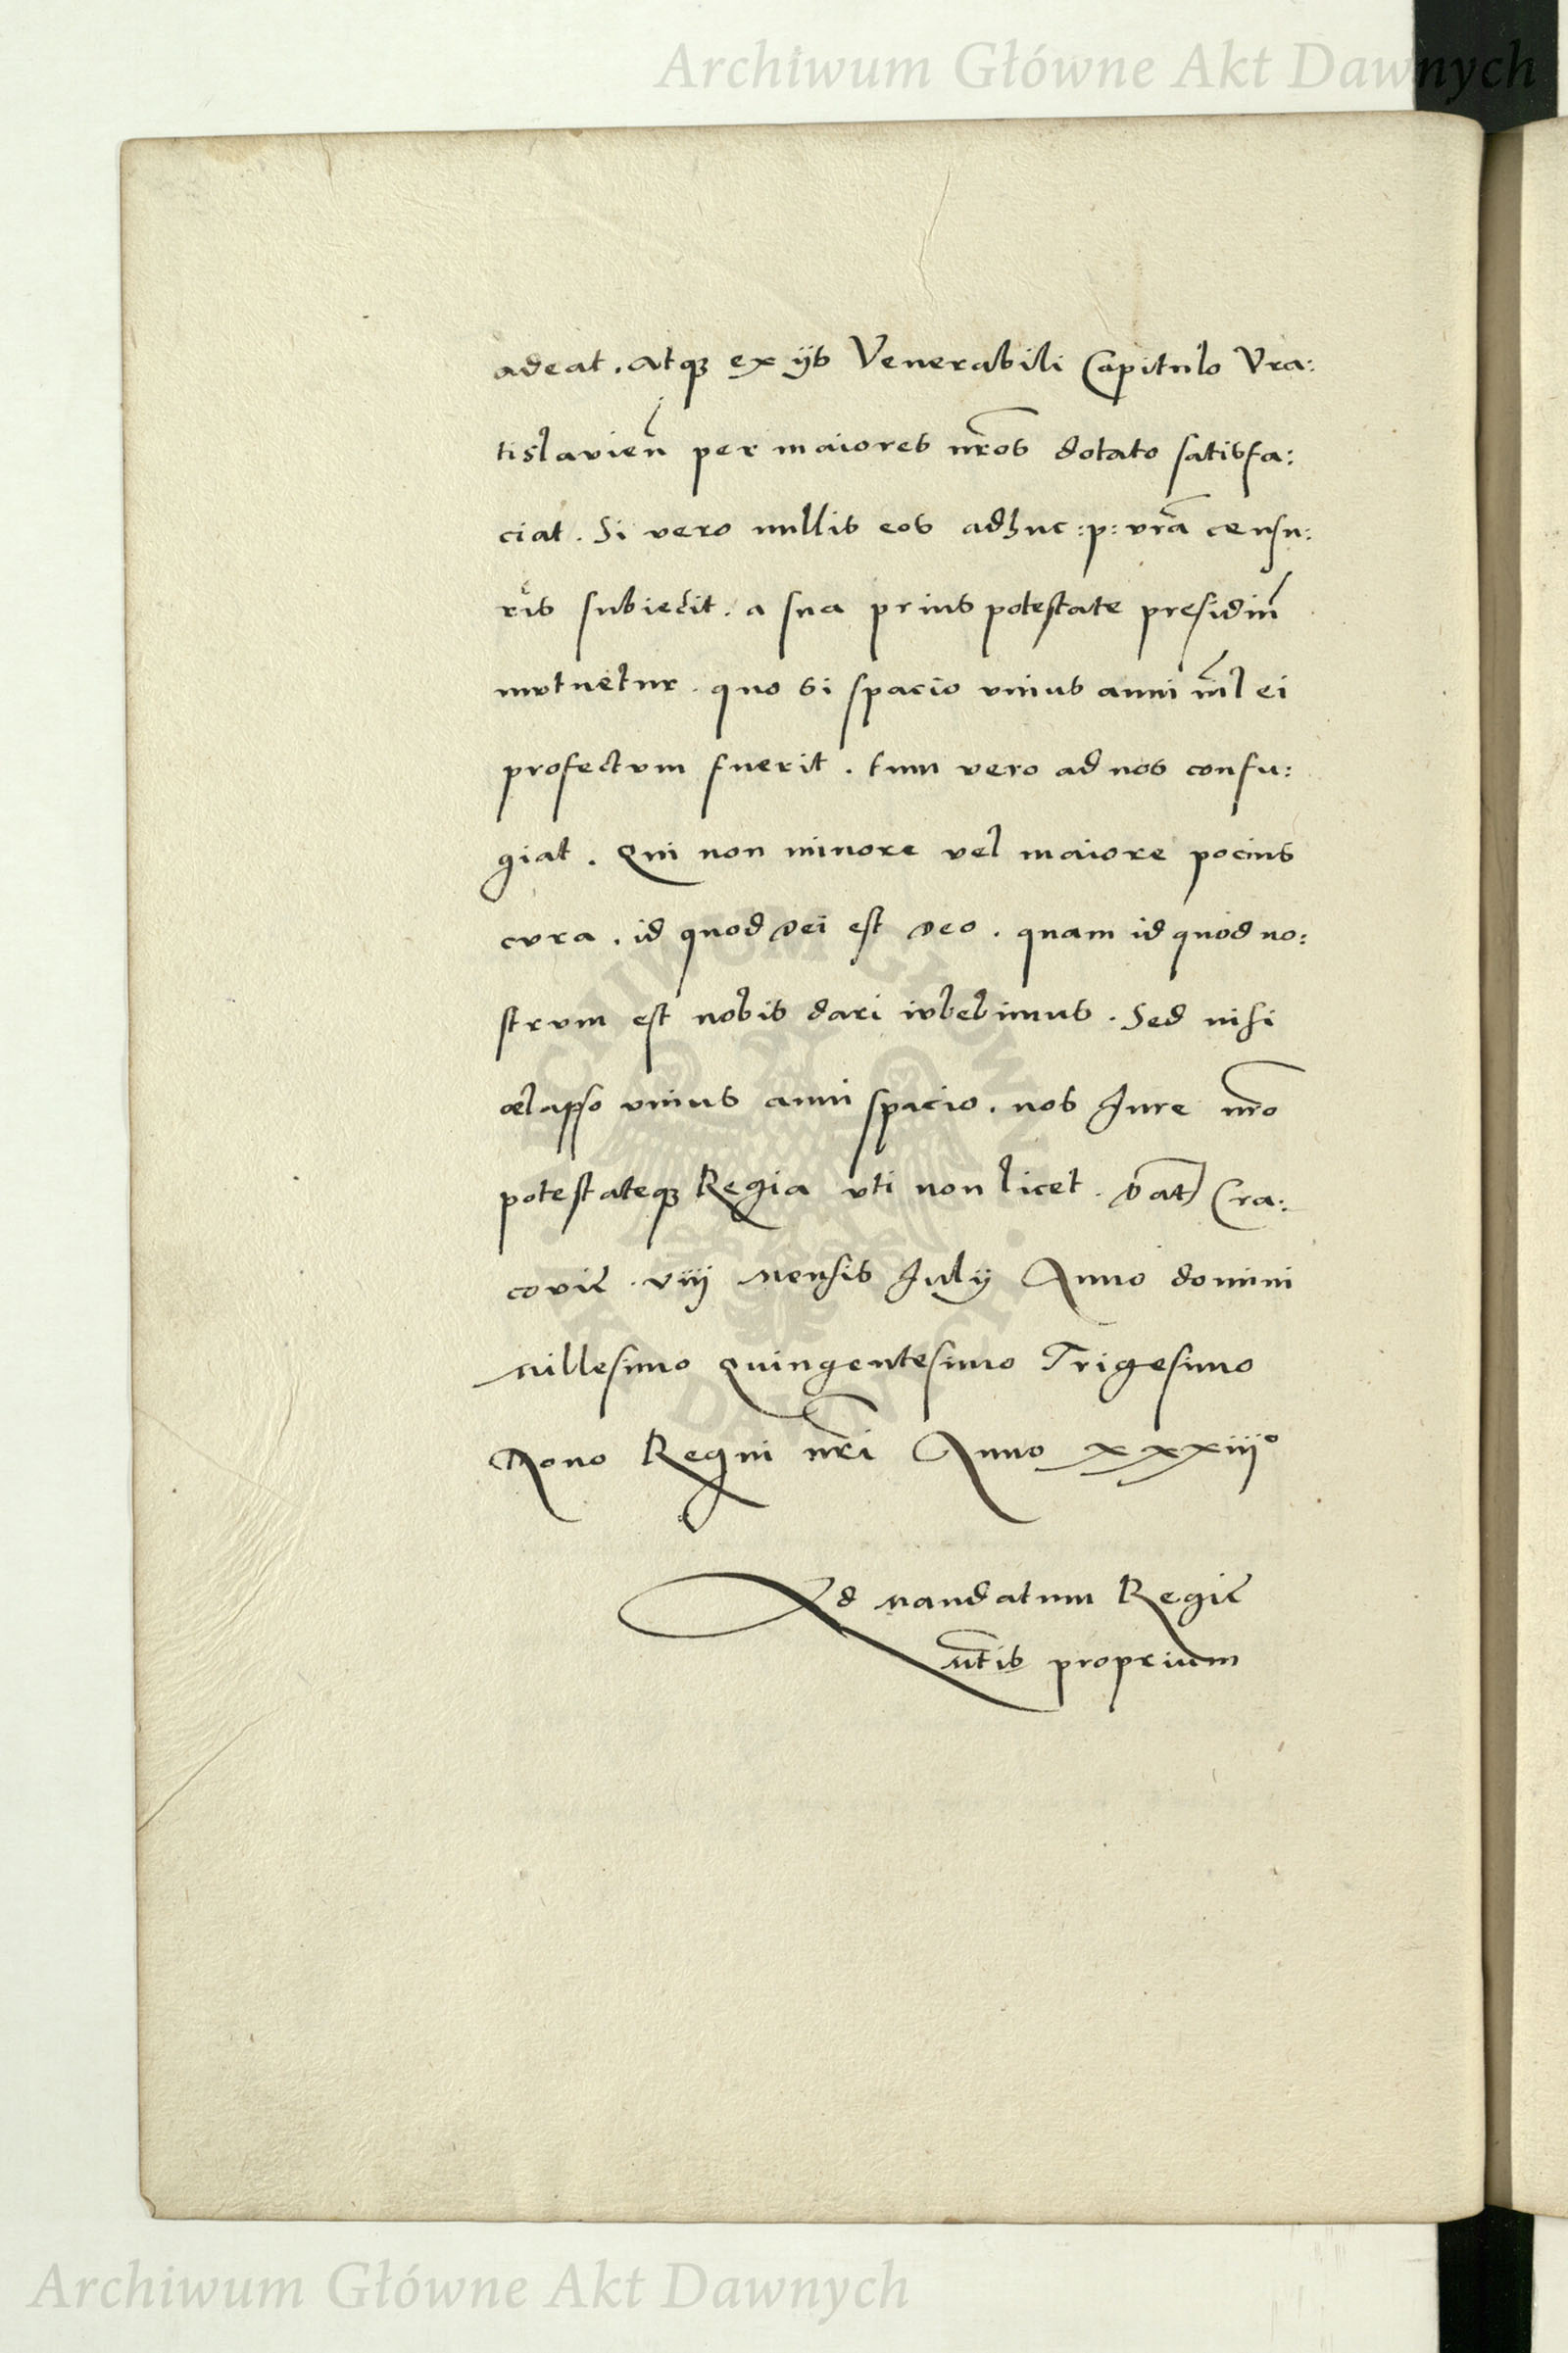 Archiwum Główne Akt Dawnych
adeat. atqȝ ex ijs Venerabili Capitulo Vra:
tislavien̄ per maiores nr̄os dotato satisfa:
ciat. Si vero nullis eos adhuc :p: vr̄a censu:
ris subiecit. a sua prius potestate presidiu̅
mutuetur. quo si spacio vnius anni nihl ei
profectvm fuerit. tum vero ad nos confu:
giat. Qui non minore vel maiore pocius
cvra. id quod Dei est Deo. quam id quod no:
strvm est nobis dari ivbebimus. Sed nisi
elapso vnius anni spacio. nos Jure nr̄o
potestateqȝ Regia vti non licet. Dat̄ Cra:
covię. viij Mensis Julij Anno domini
Millesimo Quingentesimo Trigesimo
Nono Regni nr̄i Anno xxxiijº
Ad Mandatum Regię
Mt̄is proprium
ARCHIWUM GŁÓWNE AKT DAWNYCH
Archiwum Główne Akt Dawnych